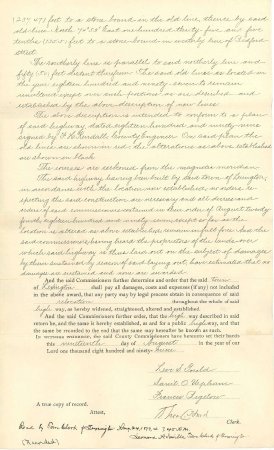 (237.47) feet to a stone bound in the old line, thence by said
old line South 70° 55' East one hundred thirty five and five
tenths (135.5) feet to a stone bound in westerly line of Bedford
street.
The southerly line is parallel to said northerly line and
fifty (50) feet distant therefrom. The said old lines as located in
the year eighteen hundred and ninety seven to remain
unaltered except over such portions as are described and
established by the above description of new lines.
The above description is intended to conform to a plan
of said highway, dated eighteen hundred and ninety nine
signed by County Engineer. On said plan the
old lines are shown in red; the alterations as above established
are shown in black.
The courses are reckoned from the magnetic meridian.
The said highway having been built by said town of Lexington,
in accordance with the location now established, no orders re-
specting the said construction are necessary and all decrees and
orders of said commissioners contained in their order of August twenty
fourth, eighteen hundred and ninety seven except so far as the
location is altered as above established remain in full force. And the
said commissioners having heard the proprietors of the lands, over
which said highway is thus laid out, on the subject of damages
by them sustained by reason of said laying out, have estimated that no
damages are sustained and none are awarded.
And the said Commissioners further determine and order that the said town
of Lexington shall pay all damages, costs and expenses (if any) not included
in the above award, that any party may by legal process obtain in consequence of said
relocation throughout the whole of said
highway, as hereby widened, straightened, altered and established.
And the said Commissioners further order, that the highway described in said
return be, and the same is hereby established, as and for a public highway, and that
the same be recorded to the end that the same may hereafter be known as such.
In witness whereof, the said County Commissioners have hereunto set their hands
this nineteenth day of August in the year of our
Lord one thousand eight hundred and ninety-nine
Levi S. Gould
Samuel O. Upham
Francis Bigelow
A true copy of record.
Attest, Clerk.
Rec'd by Town Clerk of Lexington Aug 24, 1899
(Recorded) Leonard A. Saville Town Clerk of Lexington